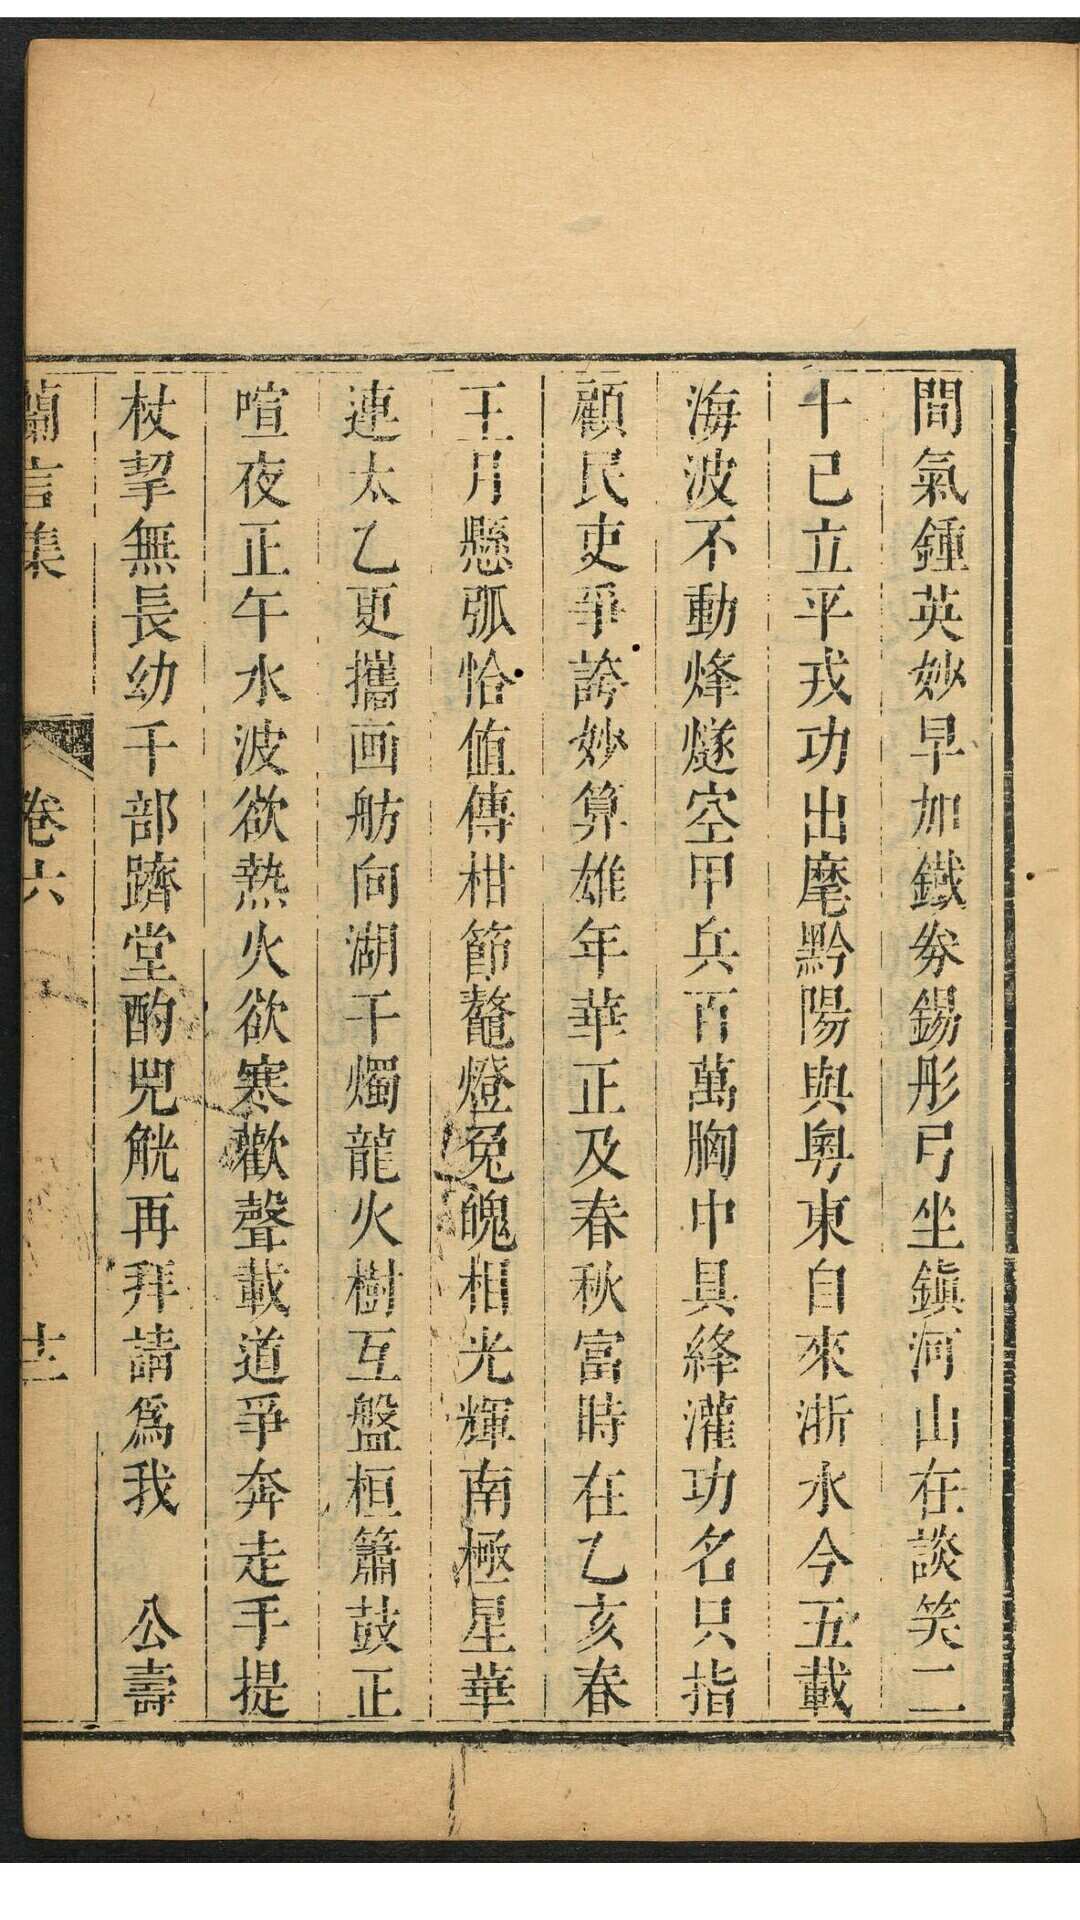 間氣鍾英妙早加鐵劵錫彤弓坐鎮河山在談笑二
十已立平戎功出麾黔陽與粤東自來浙水今五載
海波不動烽燧空甲兵百萬胸中具絳灌功名只指
顧民吏爭誇妙算雄年華正及春秋富時在乙亥春
王月懸弧恰值傳柑節鼇燈兔魄相光輝南極星華
連太乙更攜画舫向湖干燭龍火樹互盤桓簫鼓正
喧夜正午水波欲熱火欲寒歡聲載道爭奔走手提
杖挈無長幼千部躋堂酌兕觥再拜請為我　公壽
蘭言集　卷六　十二